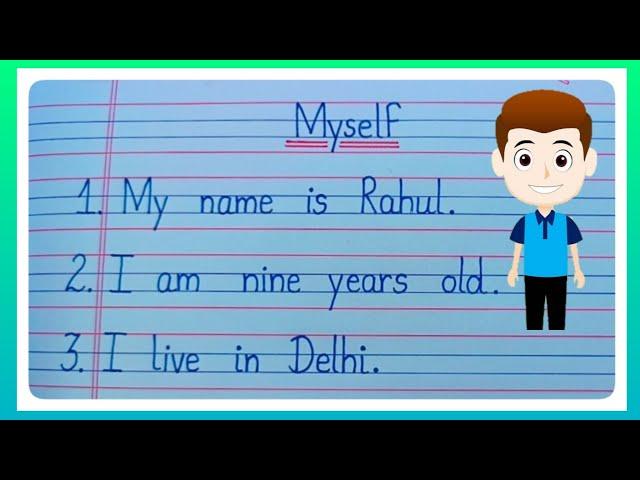 Myself
1. My name is Rahul.
2. I am nine years old.
3. I live in Delhi.